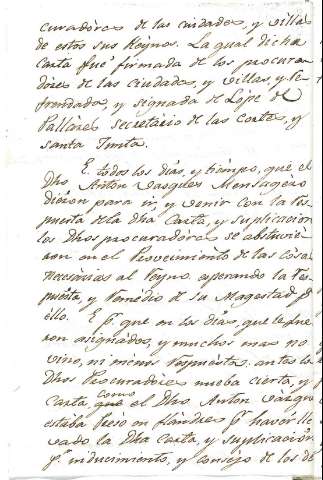 curadores de las ciudades, y villas
de estos sus Reynos. La qual dicha
carta fue firmada de los procura
dores de las ciudades, y villas, y le
frendada, y signada de Lope de
Pallares secretario de las cortes, y
santa Junta.
E todos los dias, y tiempo, que el
Dho Anton Vasques Mensagero
dieron para ir, y venir con la res
puesta de la dha Carta, y suplicacion
los Dhos procuradores se abstuvie
ron en el Proveimiento de las cosas
necesarias al Reyno esperando la res
puesta, y remedio de su Magestad pª
ello. E pr. que en los dias, que le fue
ron asignados, y muchos mas no
vino, ni menos respuesta: antes los
Dhos Procuradores nueba cierta, y
Carta, como el Dho Anton Vasques
estaba preso en Flandres pr. haver lle
vado la Dha Carta, y suplicacion
pr. inducimiento, y consejo de los de